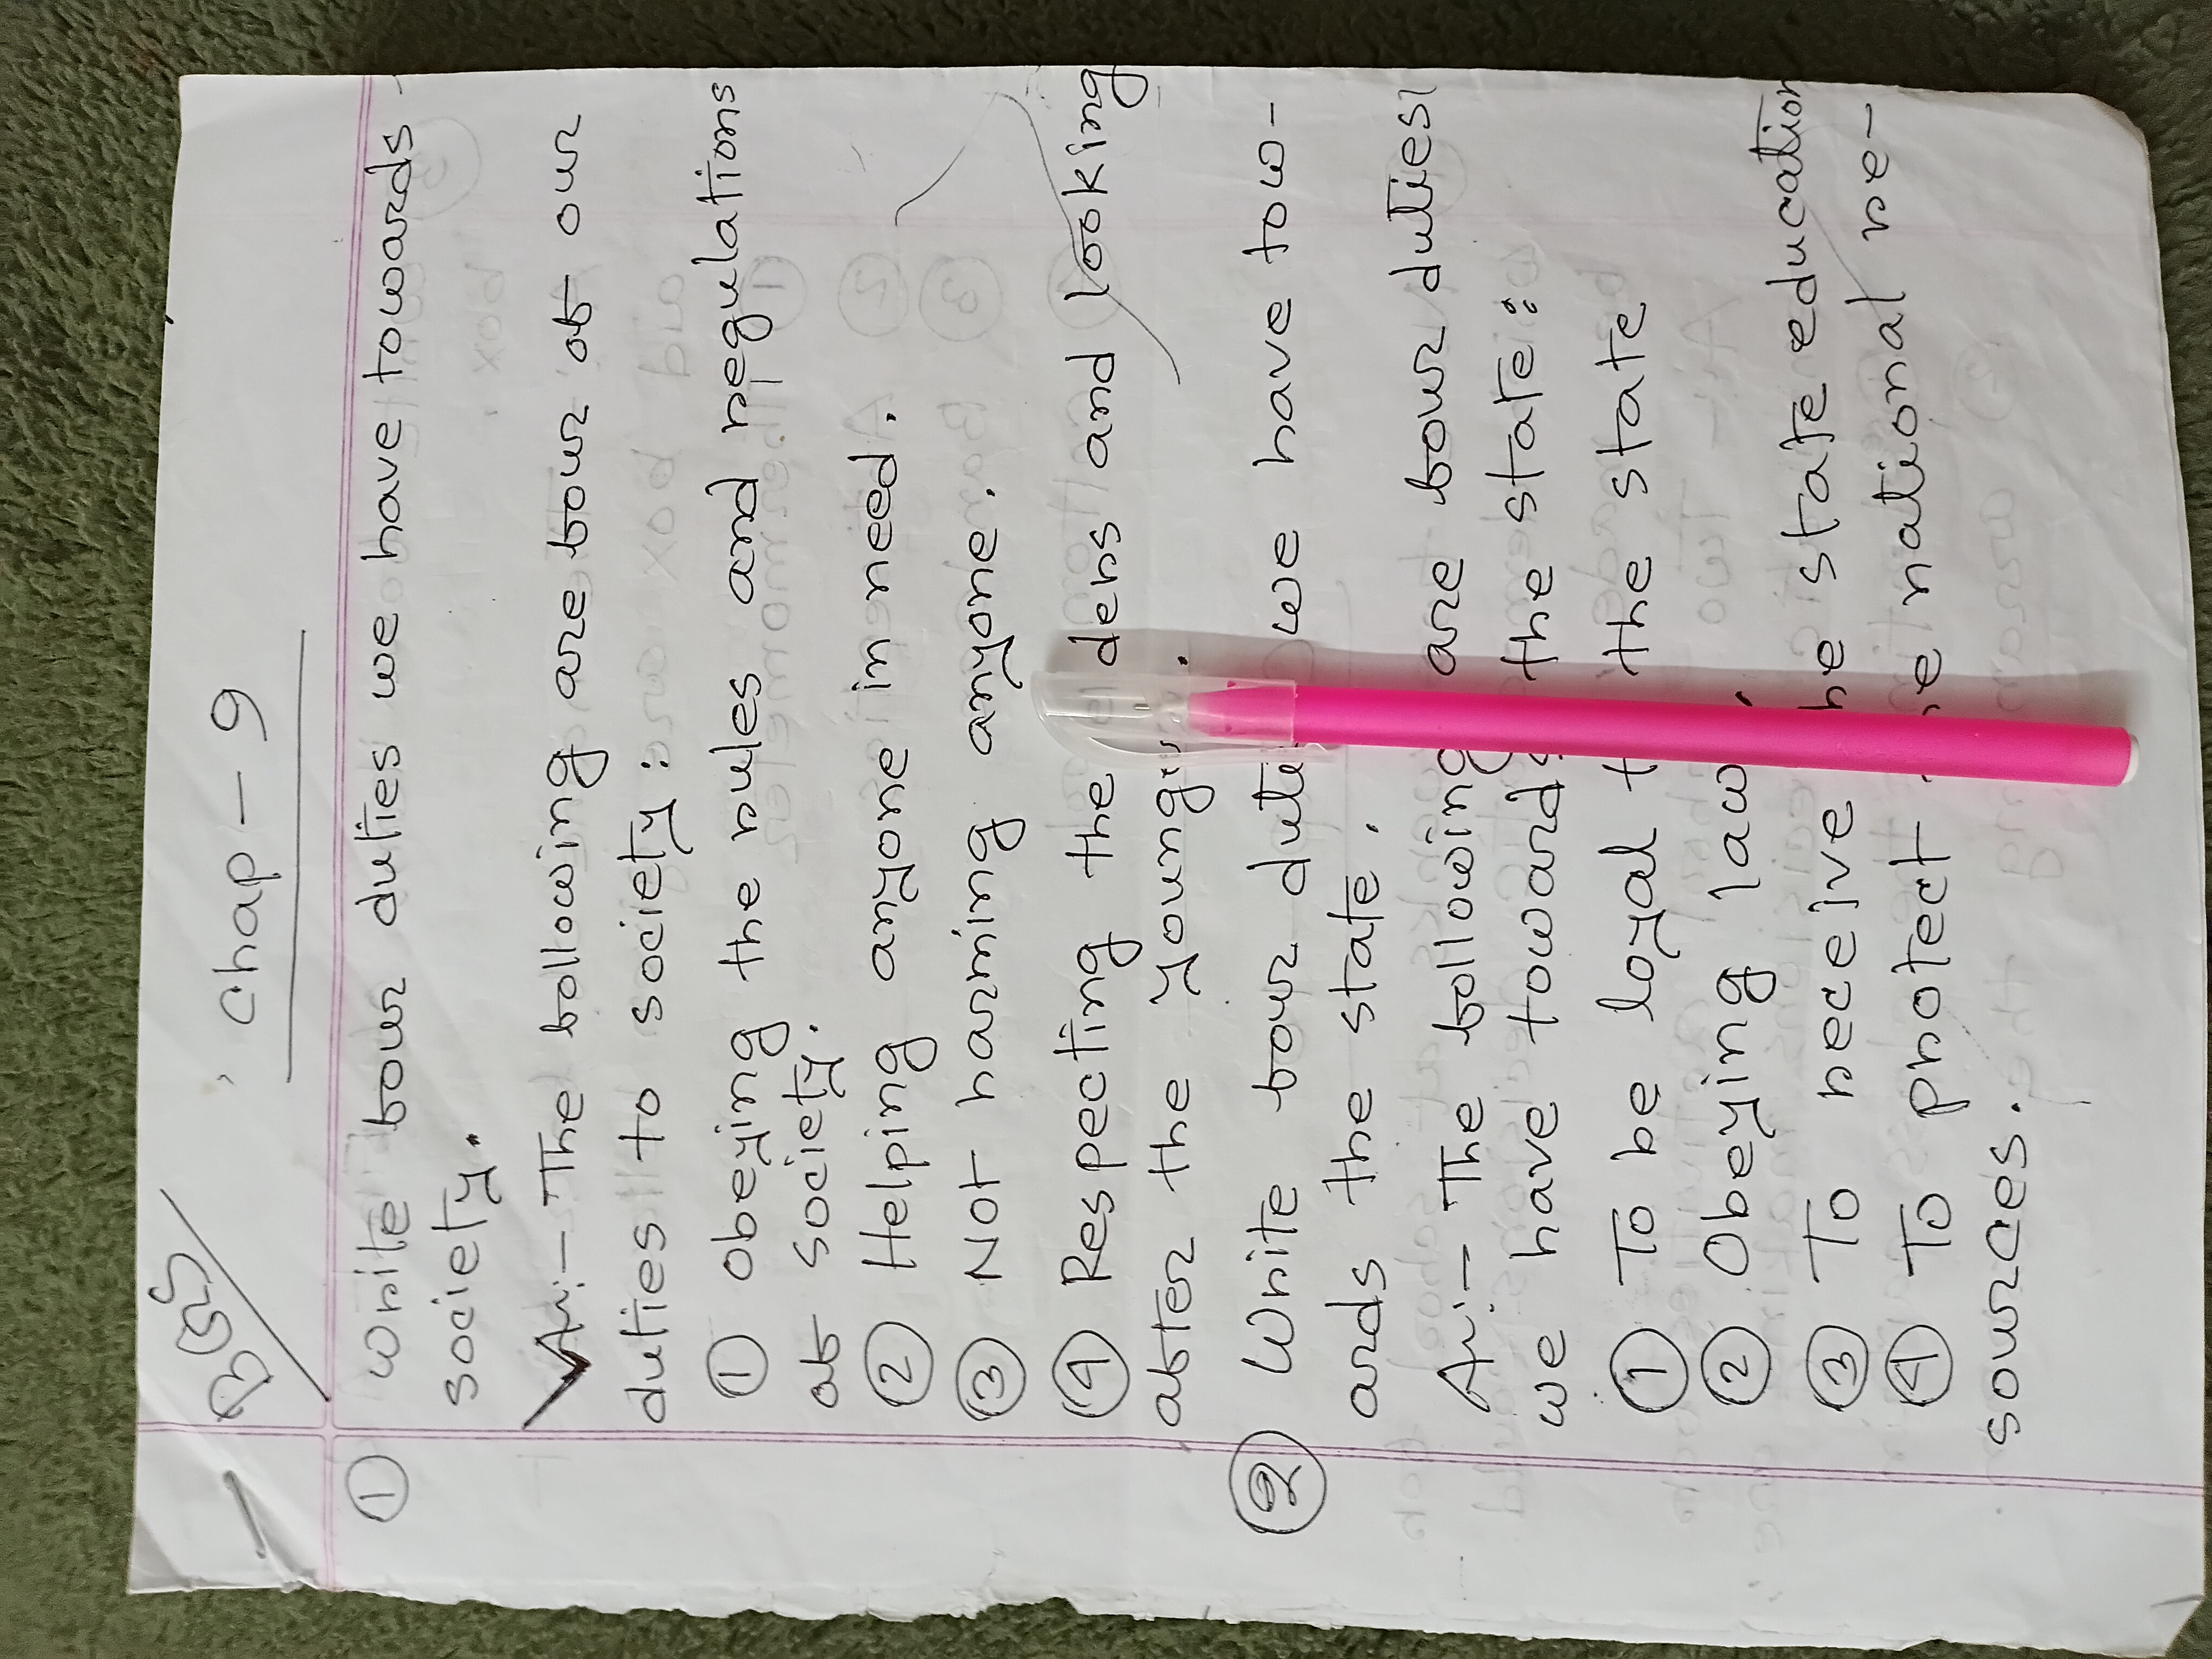 BGS
chap-9
① write four duties we have towards
society.
Av:- The following are four of our
duties to society:
① obeying the rules and regulations
of society.
② Helping anyone in need.
③ Not harming anyone.
④ Respecting the and looking
after the
② Write four we have tow-
ards the state.
Av:- The following are four duties
we have towards the state:
① To be loyal the state
② Obeying
③ To receive state education
④ To protect national re-
sources.